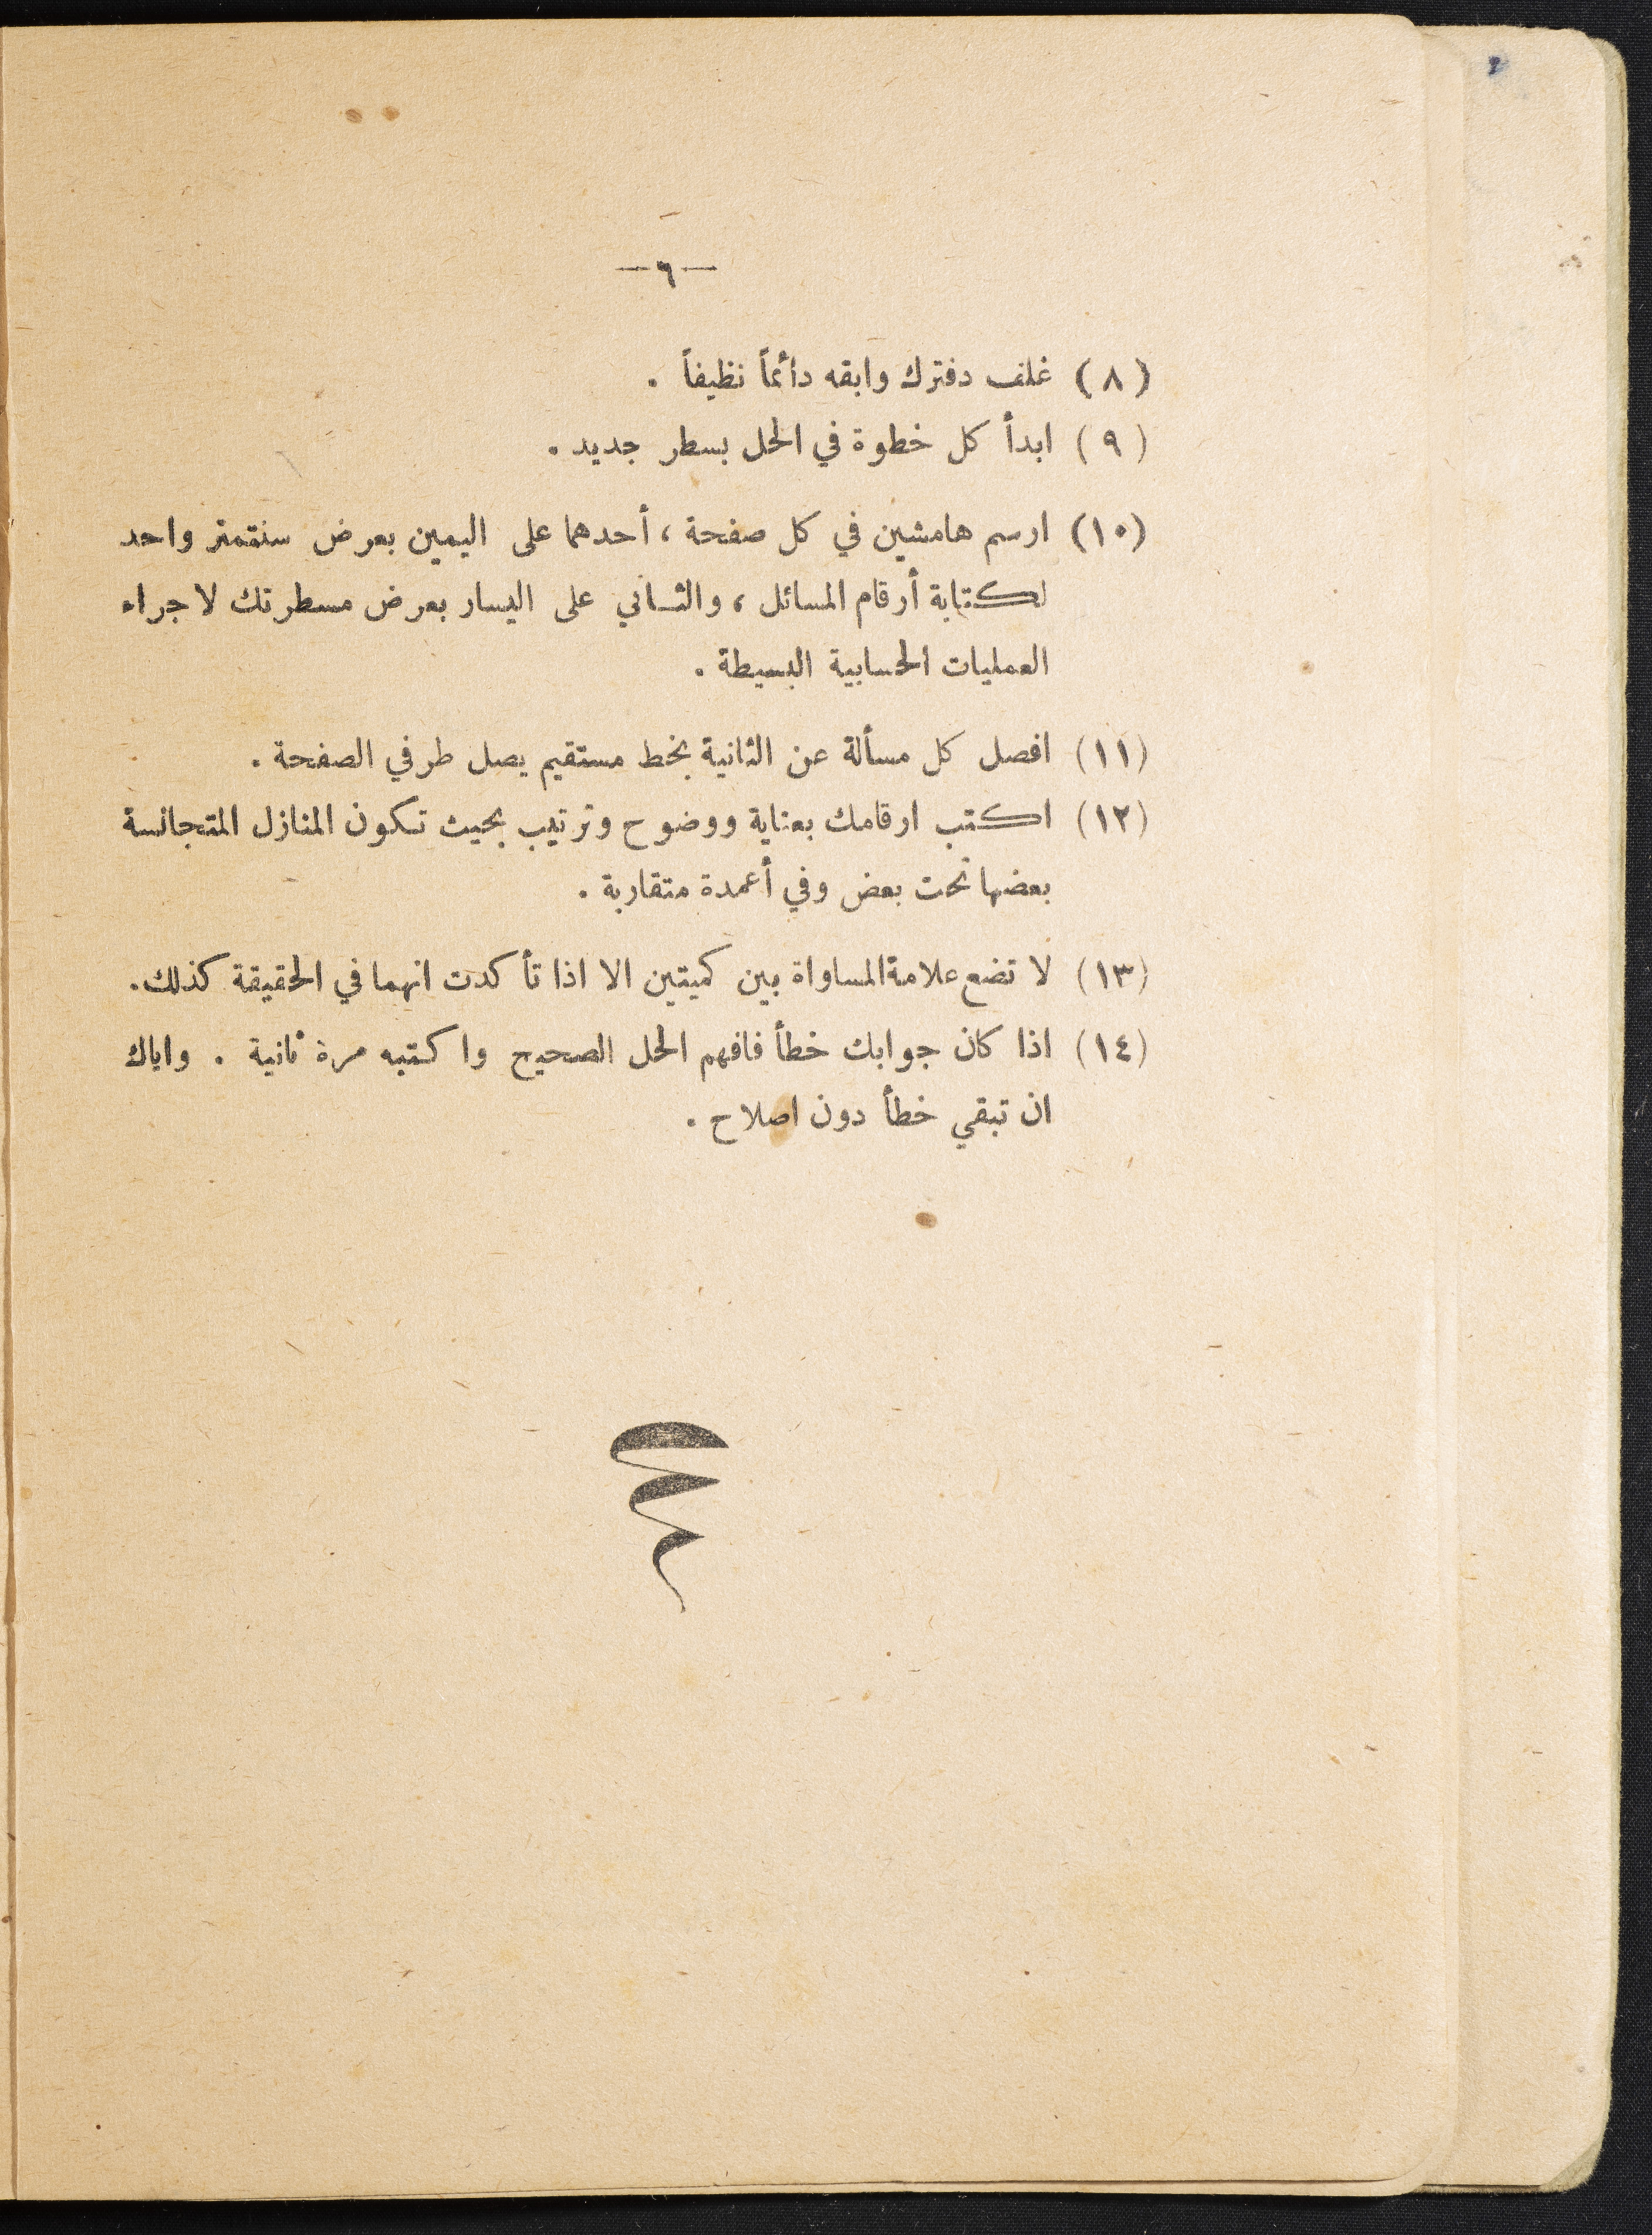 —٦—
(٨) غلف دفترك وابقه دائماً نظيفاً .
(٩) ابدأ كل خطوة في الحل بسطر جديد .
(١٠) ارسم هامشين في كل صفحة ، أحدهما على اليمين بعرض سنتمتر واحد
لكتابة أرقام المسائل ، والثاني على اليسار بعرض مسطرتك لاجراء
العمليات الحسابية البسيطة .
(١١) افصل كل مسألة عن الثانية بخط مستقيم يصل طرفي الصفحة .
(١٢) اكتب ارقامك بعناية ووضوح وترتيب بحيث تكون المنازل المتجانسة
بعضها تحت بعض وفي أعمدة متقاربة .
(١٣) لا تضع علامة المساواة بين كميتين الا اذا تأكدت انهما في الحقيقة كذلك.
(١٤) اذا كان جوابك خطأ فافهم الحل الصحيح واكتبه مرة ثانية . واياك
ان تبقي خطأ دون اصلاح .